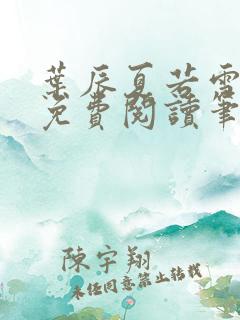 葉辰夏若雪
免費閱讀筆
陳宇翔
未經同意禁止轉載